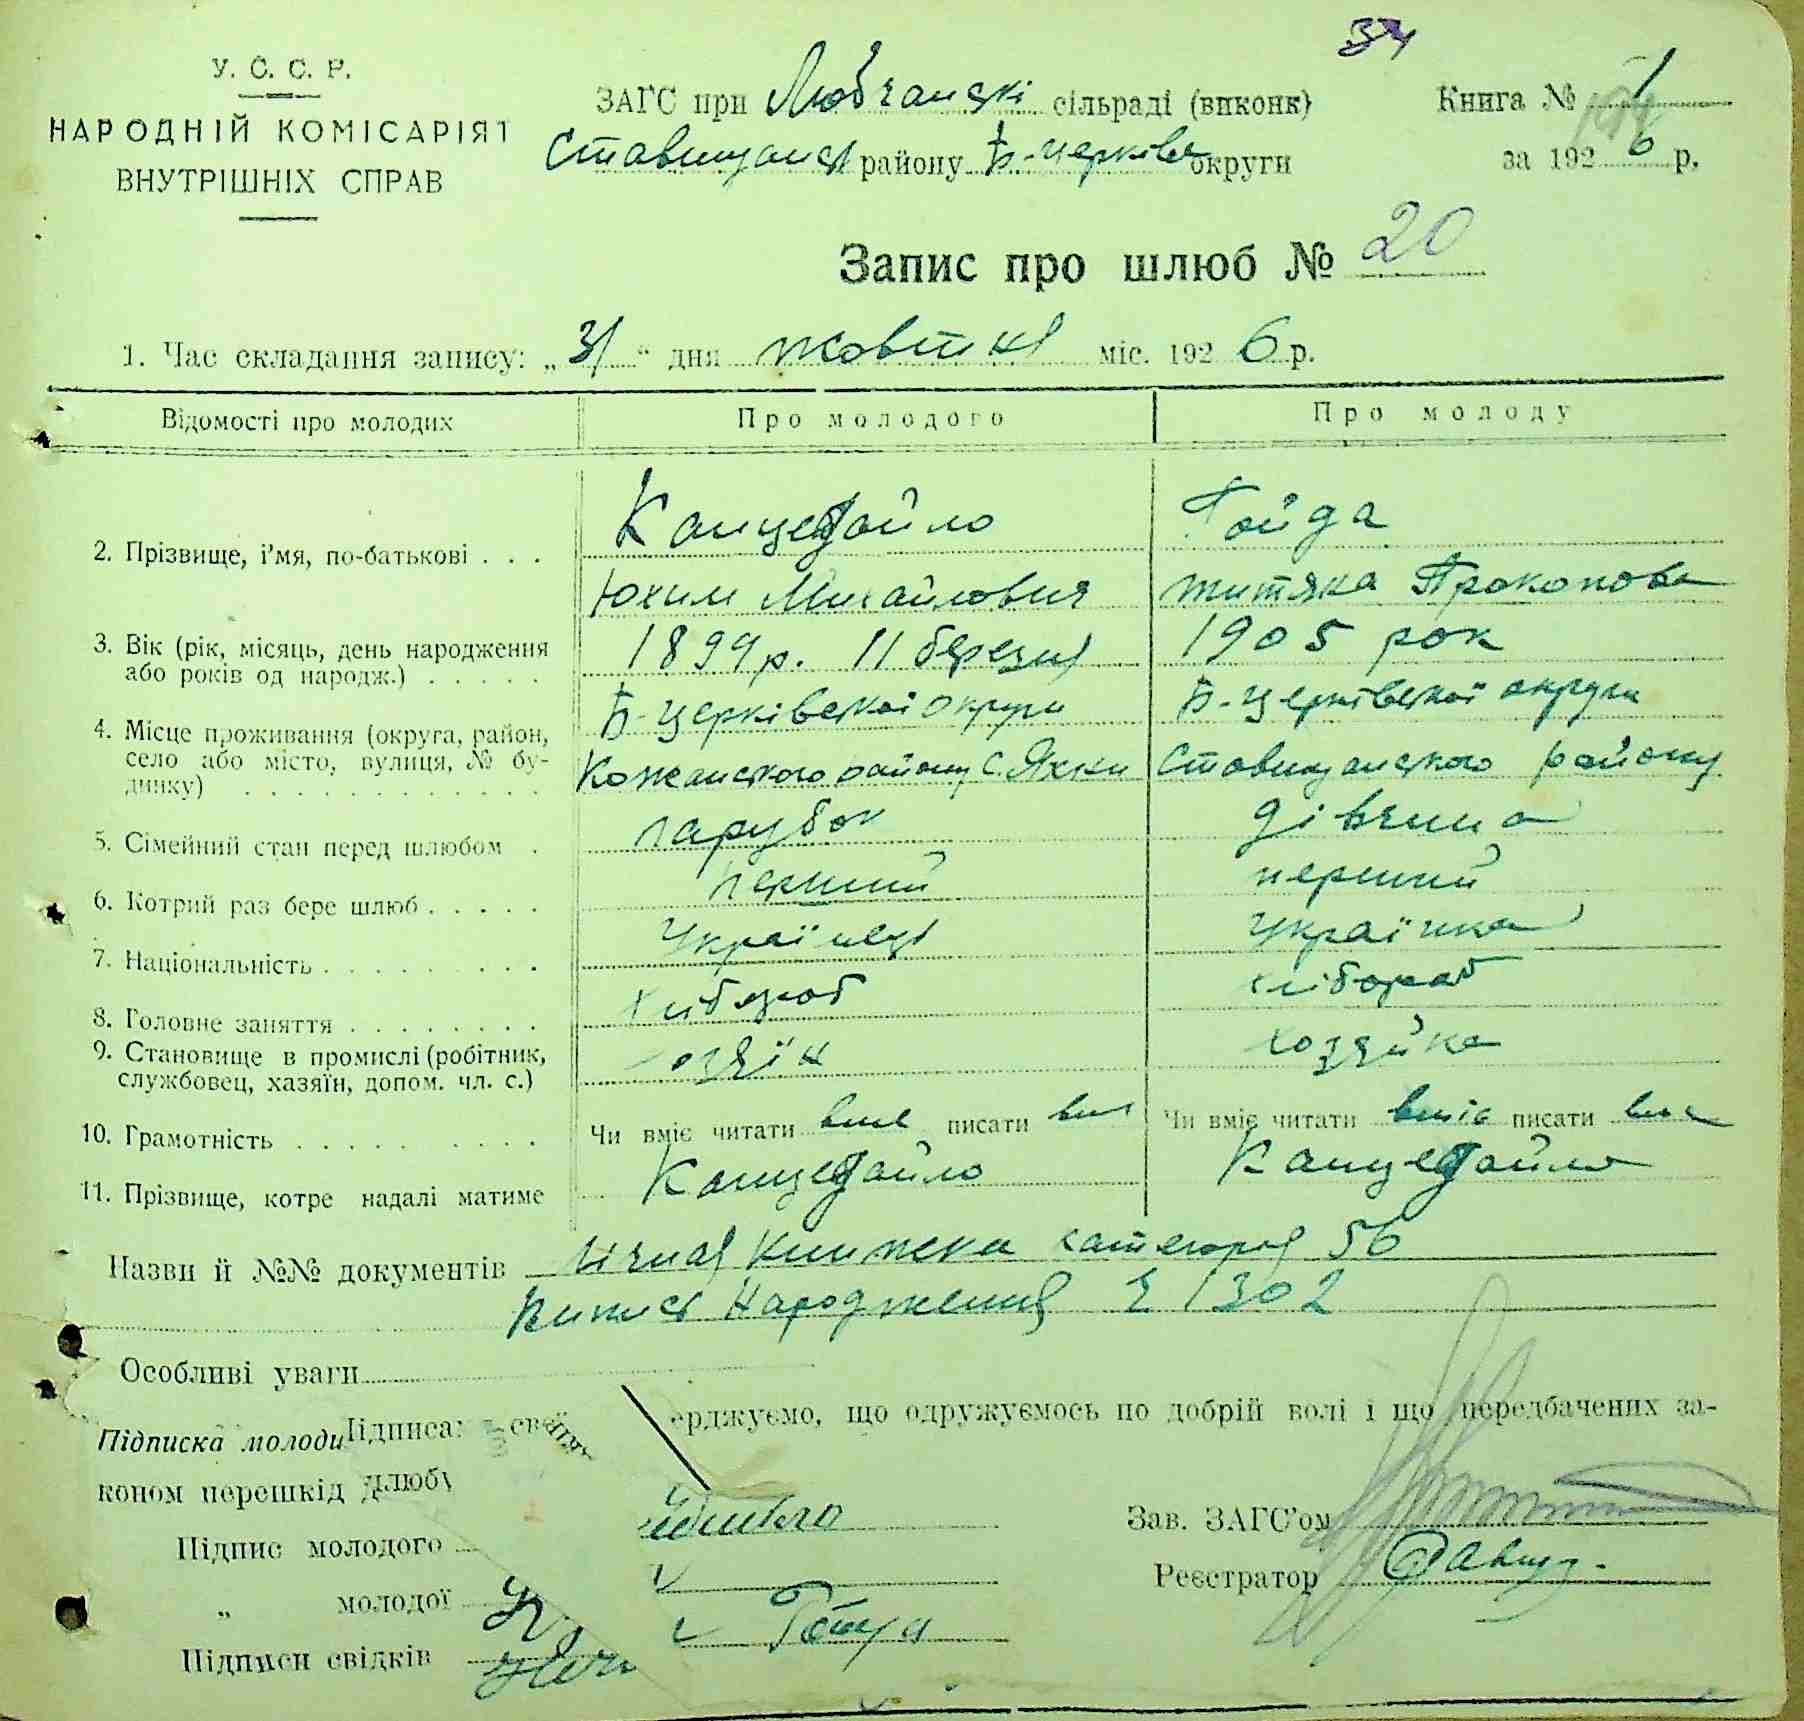 34
У. С. С. Р.
НАРОДНІЙ КОМІСАРІЯТ
ВНУТРІШНІХ СПРАВ
ЗАГС при Любчанскі сільраді (виконк)
Книга № 1
Ставищанськ району Б-Церківсь округи
за 1926 р.
Запис про шлюб № 20
1. Час складання запису: „31“ дня жовтня міс. 1926 р.
Відомості про молодих
Про молодого
Про молоду
2. Прізвище, і'мя, по-батькові . . .
Канцедайло
Юхим Михайлович
Гойда
Прокопова
3. Вік (рік, місяць, день народження
або років од народж.) . . . . .
1899 р. 11 березня
1905 рок
4. Місце проживання (округа, район,
село або місто, вулиця, № бу-
динку) . . . . . . . . . . . .
Б-Церківської округи
Кожанського району с. Яхни
Б-Церківської округи
Ставищанського району
5. Сімейний стан перед шлюбом .
парубок
дівчина
6. Котрий раз бере шлюб . . . . .
перший
перший
7. Національність . . . . . . . . .
Українець
Українка
8. Головне заняття . . . . . . . .
хлібороб
хлібороб
9. Становище в промислі (робітник,
службовец, хазяїн, допом. чл. с.)
хозяїн
хозяйка
10. Грамотність . . . . . . . . . .
Чи вміє читати вміє писати вмі
Чи вміє читати вміє писати вміє
11. Прізвище, котре надалі матиме
Канцедайло
Канцедайло
Назви й №№ документів книжка категорія
Випись Народження 1302
Особливі уваги
Підписка молоди Підписа: свої ерджуємо, що одружуємось по добрій волі і що передбачених за-
коном перешкід шлюбу
Підпис молодого
Зав. ЗАГС'ом
„ молодої
Реєстратор
Підписи свідків